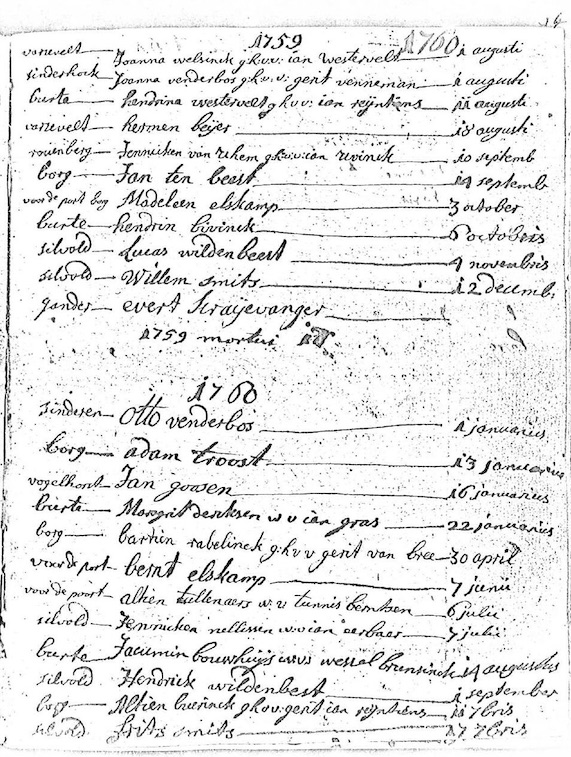 16
1759 1760
varsevelt Joanna welsinck g.h.v.v: ian Westervelt 1 augusti
sinderhoek Joanna venderbos g.h.v.v: gerit venneman 1 augusti
burte hendrina westervelt g.h.v.v: ian reijntiens 11 augusti
varsevelt hermen beijer 18 augusti
Jennicken van g.h.v.v: ian 10 septemb
borg Jan ten beest septemb
voor de port borg Madeleen elskamp 3 october
burte hendrin bivinck 6 octobris
silvold Lucas wildenbeest novembris
silvold Willem smits 12 decemb:
gander evert
1759 mortui
1760
sinderen Otto venderbos 1 januarius
borg adam troost 13 januarius
vogelhont Jan goosen 16 januarius
burte Margrit dericksen w v ian gras 22 januarius
borg bartien rabelinck g.h.v v gerit van bree 30 april
voor de port bernt elskamp 7 junii
voor de poort altien tullenaers w. v tunnis berntsen 6 julii
silvold Jennicken nellissen w.v ian 7 julii
burte Jacumin bouwhuijs wessel brunsinck 14 augustus
silvold Hendrick wildenbest 1 september
borg Altien g.h.v.v: gerit ian reijntiens 7bris
silvold frits smits 17 7bris